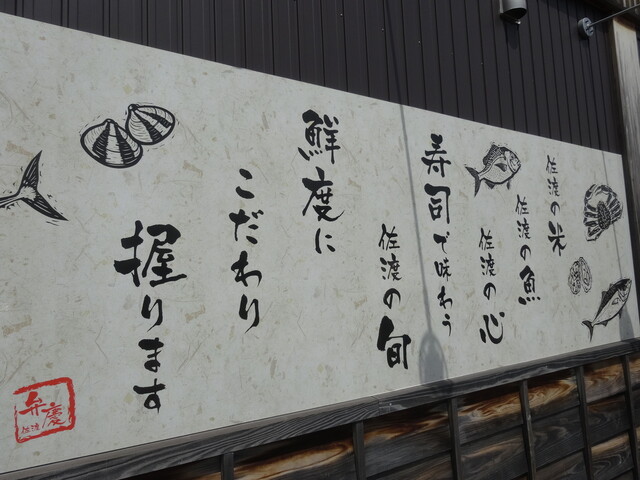 佐渡の米
佐渡の魚
佐渡の心
寿司で味わう
佐渡の旬
鮮度に
こだわり
握ります
弁慶
佐渡